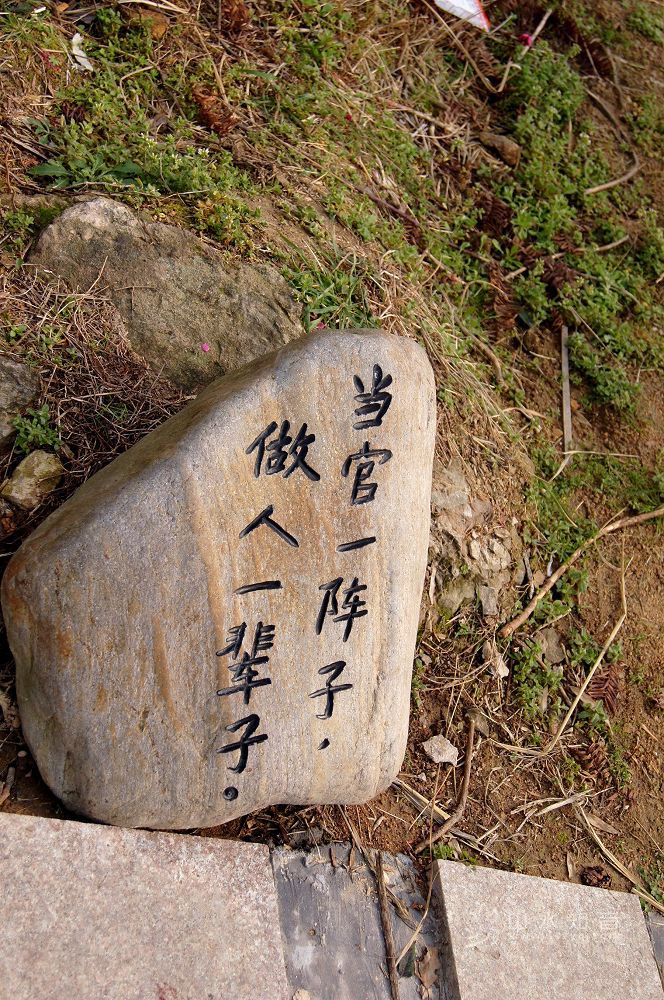 当官一阵子，
做人一辈子。